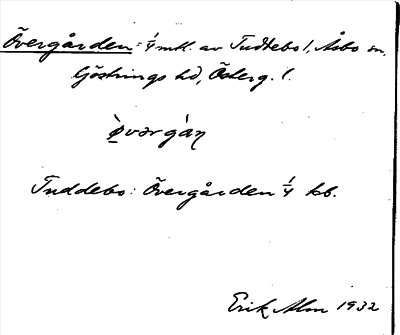 Övergården: ¼ mtl. av Tuddebo 1, Åsbo sn,
Göstrings hd, Österg. l.
ø̀vərgán
Tuddebo: Övergården ¼ kb.
Erik Alm 1932